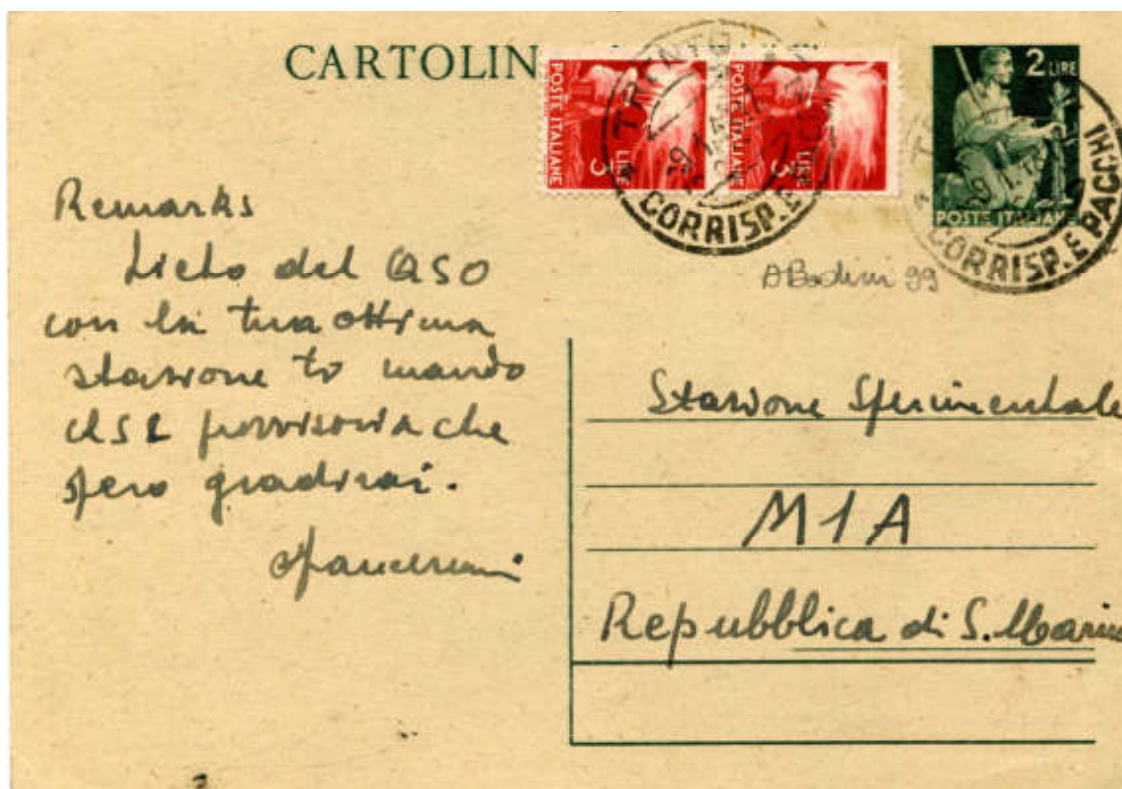 CARTOLIN
POSTE ITALIANE
LIRE
3
POSTE ITALIANE
LIRE
3
TRENTO
CORRISP. E
2 LIRE
POSTE ITALIANE
CORRISP. E PACCHI
Remarks
Lieto del QSO
con la tua ottima
stazione ti mando
QSL provvisoria che
spero gradirai.
A Bodini 99
Stazione Sperimentale
M1A
Repubblica di S. Marino